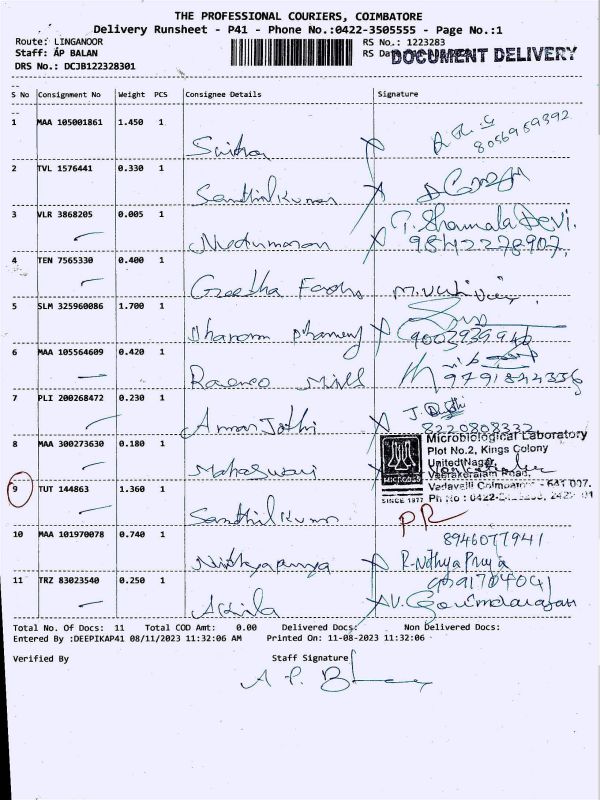 THE PROFESSIONAL COURIERS, COIMBATORE
Delivery Runsheet - P41 - Phone No.:0422-3505555 - Page No.:1
Route: LINGANOOR RS No.: 1223283
Staff: ÁP BALAN RS Da DOCUMENT DELIVERY
DRS No.: DCJB122328301
S No Consignment No Weight PCS Consignee Details Signature
1 MAA 105001861 1.450 1
8056959392
2 TVL 1576441 0.330 1
Sandhil Kumar
3 VLR 3868205 0.005 1 T. Shamala Devi.
Nedumaran 9842278907,
4 TEN 7565330 0.400 1
Geetha
5 SLM 325960086 1.700 1
Dharani
6 MAA 105564609 0.420 1
Mill
7 PLI 200268472 0.230 1
Amar Jothi 8220808332
8 MAA 300273630 0.180 1 Microbiological Laboratory
Plot No.2, Kings Colony
UnitedNagar,
Maheswari Veerakeralam Road,
MICROLAB
9 TUT 144863 1.360 1 Vadavalli Coimbatore - 641 007.
SINCE 1977 Ph No : 0422-
Sandhil Kumar PR
10 MAA 101970078 0.740 1 8946077941
Nithyapriya R. Nithya Priya
11 TRZ 83023540 0.250 1
Akila V. Govindarajan
Total No. Of Docs: 11 Total COD Amt: 0.00 Delivered Docs: Non Delivered Docs:
Entered By :DEEPIKAP41 08/11/2023 11:32:06 AM Printed On: 11-08-2023 11:32:06
Verified By Staff Signature
A. P. B